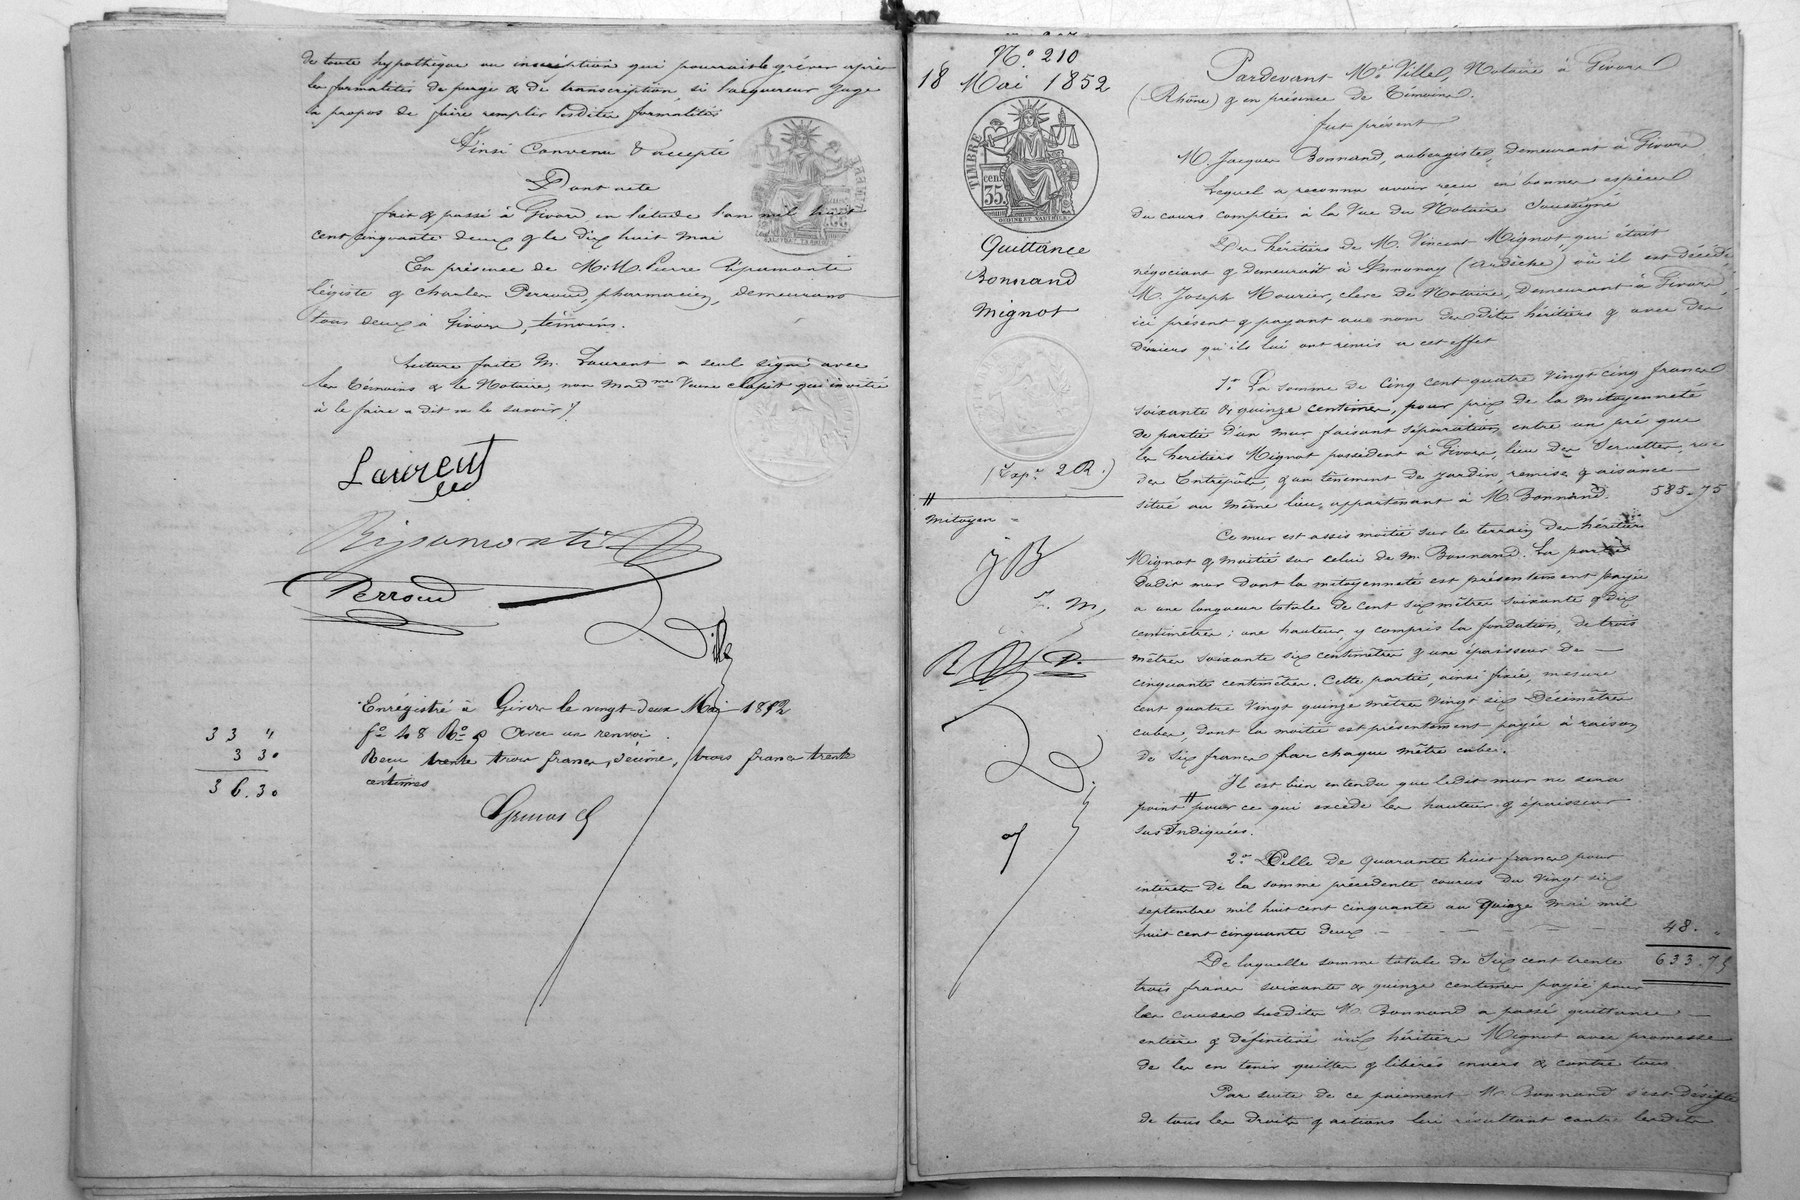 de toute hypothèque ou inscription qui pourrait le gréver après
les formalités de purge & de transcription, si l'acquereur juge
à propos de faire remplir lesdites formalités
Ainsi Convenu & accepté
Dont acte
fait & passé à Givors, en l'étude l'an mil huit
cent cinquante deux & le dix huit mai
En présence de M.M. Pierre Ripamonti
légiste & Charles Perroud, pharmacien, demeurans
tous deux à Givors, témoins.
Lecture faite M. Laurent a seul signé avec
les témoins & le Notaire, non Mad.me Veuve Clapit qui invitée
à le faire a dit ne le savoir
Laurent
Ripamonti
Perroud
Ville
Enrégistré à Givors le vingt-deux Mai 1852
f.o 48 R.o 5 Avec un renvoi.
Reçu trente trois francs, décime, trois francs trente
centimes
33 "
3 30
36.30
N.o 210
18 Mai 1852
TIMBRE
cen. 35.
Quittance
Bonnand
Mignot
(Exp.on 2 R.)
# mitoyen =
J B
J. M.
R P.
Pardevant M.e Ville, Notaire à Givors
(Rhône) & en présence de Témoins.
fut présent
M. Jacques Bonnand, aubergiste, demeurant à Givors
Lequel a reconnu avoir reçu en bonnes espèces
du cours comptées à la Vue du Notaire Soussigné
Des héritiers de M. Vincent Mignot, qui était
négociant & demeurant à Annonay (Ardèche) où il est décédé
M. Joseph Mourier, clerc de Notaire, Demeurant à Givors,
ici présent & payant au nom desdits héritiers & avec des
deniers qu'ils lui ont remis à cet effet
1.o La somme de Cinq cent quatre vingt cinq francs
soixante & quinze centimes, pour prix de la mitoyenneté
de partie d'un mur faisant séparation entre un pré que
les héritiers Mignot possèdent à Givors, lieu des Servettes, rue
de l'Entrepôt, & un tènement de jardin, remise & aisances
situé au même lieu, appartenant à M. Bonnand. 585.75
Ce mur est assis moitié sur le terrain des héritiers
Mignot & moitié sur celui de M. Bonnand. La partie
dudit mur dont la mitoyenneté est présentement payée
a une longueur totale de cent six mètres soixante & dix
centimètres; une hauteur, y compris la fondation, de trois
mètres soixante six centimètres & une épaisseur de
cinquante centimètres. Cette partie, ainsi fixée, mesure
cent quatre vingt quinze mètres vingt six Décimètres
cubes, dont la moitié est présentement payée à raison
de Six francs par chaque mètre cube.
Il est bien entendu que ledit mur ne sera
point # pour ce qui excède les hauteur & épaisseur
sus Indiquées.
2.o Celle de quarante huit francs pour
intérêts de la somme précédente courus du vingt six
septembre mil huit cent cinquante au Quinze mai mil
huit cent cinquante deux 48. "
De laquelle somme totale de Six cent trente 633.75
trois francs soixante & quinze centimes payée pour
les causes susdites M. Bonnand a passé quittance
entière & définitive aux héritiers Mignot avec promesse
de les en tenir quittes & libérés envers & contre tous
Par suite de ce paiement M. Bonnand s'est désisté
de tous les droits & actions lui résultant contre lesdits